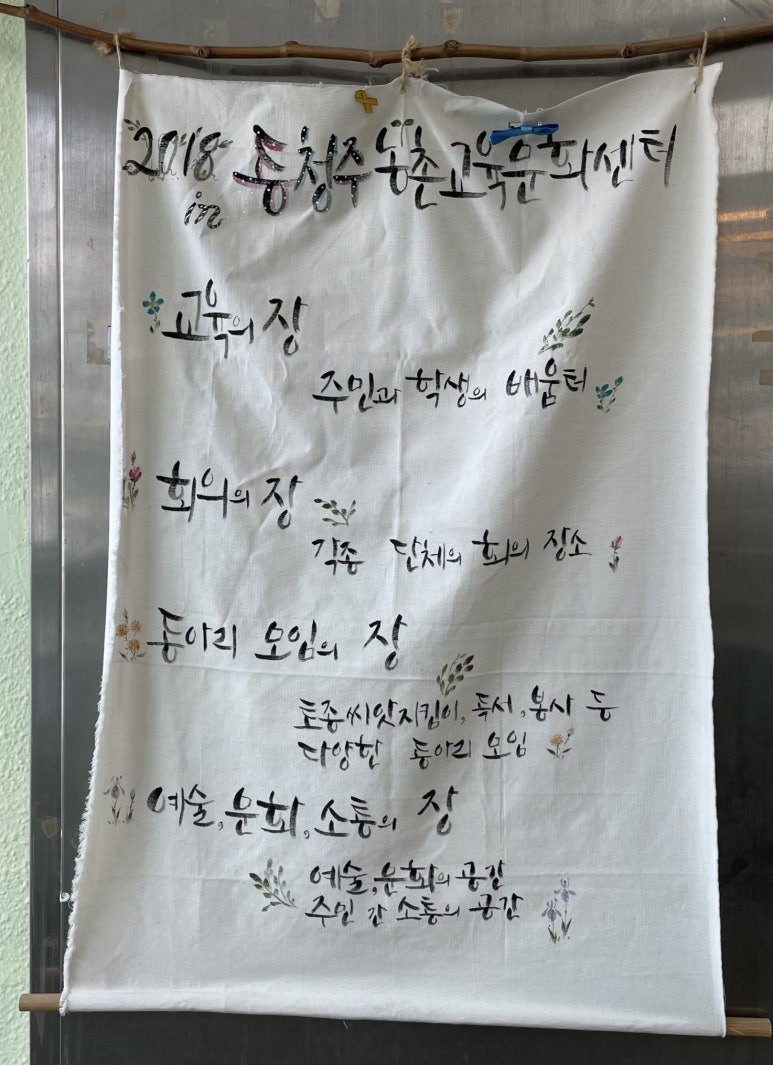 2018 동청주농촌교육문화센터
in
교육의 장
주민과 학생의 배움터
회의의 장
각종 단체의 회의 장소
동아리 모임의 장
토종씨앗지킴이, 독서, 봉사 등
다양한 동아리 모임
예술, 문화, 소통의 장
예술, 문화의 공간
주민 간 소통의 공간